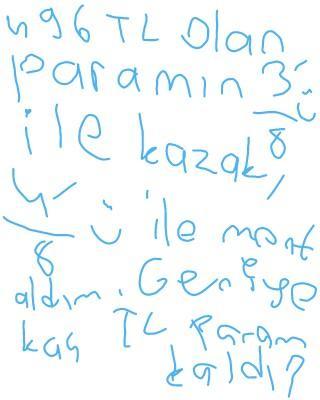 496 TL olan
paramın 3/8'ü
ile kazak,
4/8'ü ile mont
aldım. Geriye
kaç TL param
kaldı?